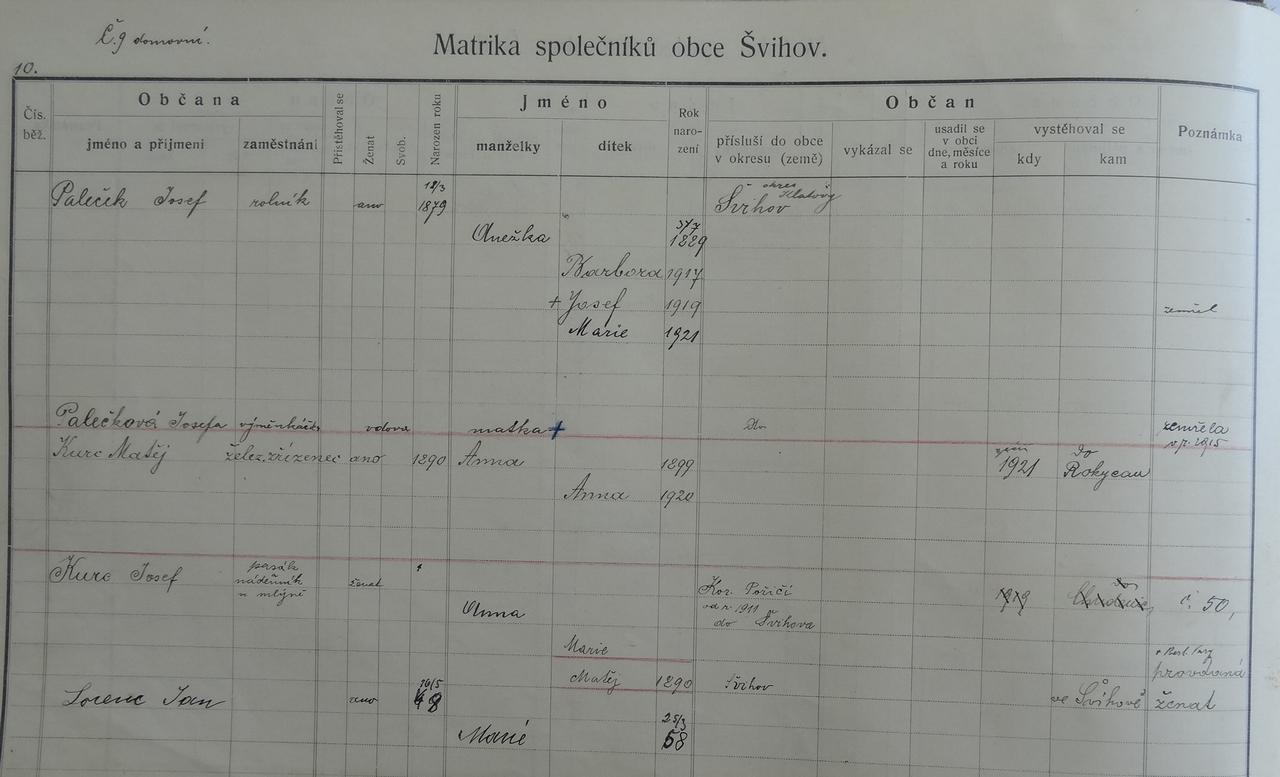 Č. 9 domovní.
Matrika společníků obce Švihov.
10.
Čís. běž.
Občana
jméno a přijmení
zaměstnání
Přistěhoval se
Ženat
Svob.
Narozen roku
Jméno
manželky
dítek
Rok naro- zení
Občan
přísluší do obce v okresu (země)
vykázal se
usadil se v obci dne, měsíce a roku
vystěhoval se
kdy
kam
Poznámka
Paleček Josef rolník ano 12/3 1879 Švihov okres Klatovy
Anežka 5/7 1889
Barbora 1917
+ Josef 1919 zemřel
Marie 1921
Palečková Josefa výměnkářk vdova matka + Dto zemřela v r. 1915
Kurc Matěj želez. zřízenec ano 1890 Anna 1899 září 1921 do Rokycan
Anna 1920
Kurc Josef nádeník u mlýně ženat
Anna Kor. Poříčí od r. 1911 do Švihova 1919 č. 50,
Marie provdaná
Matěj 1890 Švihov
Lorenc Jan ano 16/5 48 ve Švihově ženat
Marie 25/3 58